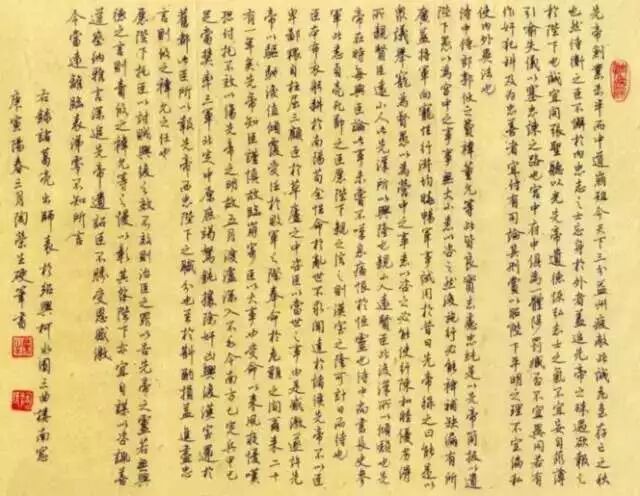 先帝創業未半而中道崩殂今天下三分益州疲敝此誠危急存亡之秋
也然侍衛之臣不懈於内忠志之士忘身於外者蓋追先帝之殊遇欲報之
於陛下也誠宜開張聖聽以光先帝遺德恢弘志士之氣不宜妄自菲薄
引喻失儀以塞忠諫之路也宮中府中俱為一體陟罰臧否不宜異同若有
作奸犯科及為忠善者宜付有司論其刑賞以昭陛下平明之理不宜偏私
使内外異法也
侍中侍郎郭攸之費禕董允等此皆良實志慮忠純是以先帝簡拔以遺
陛下愚以為宮中之事事無大小悉以咨之然後施行必能裨補缺漏有所
廣益將軍向寵性行淑均曉暢軍事試用於昔日先帝稱之曰能是以
衆議舉寵為督愚以為營中之事悉以咨之必能使行陳和睦優劣得
所親賢臣遠小人此先漢所以興隆也親小人遠賢臣此後漢所以傾頹也先
帝在時每與臣論此事未嘗不嘆息痛恨於桓靈也侍中尚書長史參
軍此悉貞亮死節之臣願陛下親之信之則漢室之隆可計日而待也
臣本布衣躬耕於南陽苟全性命於亂世不求聞達於諸侯先帝不以臣
卑鄙猥自枉屈三顧臣於草廬之中咨臣以當世之事由是感激遂許先
帝以驅馳後值傾覆受任於敗軍之際奉命於危難之間爾來二十
有一年矣先帝知臣謹慎故臨崩寄臣以大事也受命以來夙夜憂嘆
恐付托不效以傷先帝之明故五月渡瀘深入不毛今南方已定兵甲已
足當獎率三軍北定中原庶竭駑鈍攘除奸凶興復漢室還於
舊都此臣所以報先帝而忠陛下之職分也至於斟酌損益進盡忠
言則攸之禕允之任也
願陛下托臣以討賊興復之效不效則治臣之罪以告先帝之靈若無興
德之言則責攸之禕允等之慢以彰其咎陛下亦宜自謀以咨諏善
道察納雅言深追先帝遺詔臣不勝受恩感激
今當遠離臨表涕零不知所言
右錄諸葛亮出師表於紹興柯水園三曲樓南窗
庚寅陽春三月陶榮生硬筆書